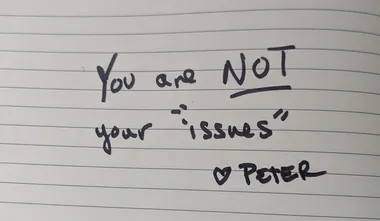 You are NOT
your "issues"
♡ PETER